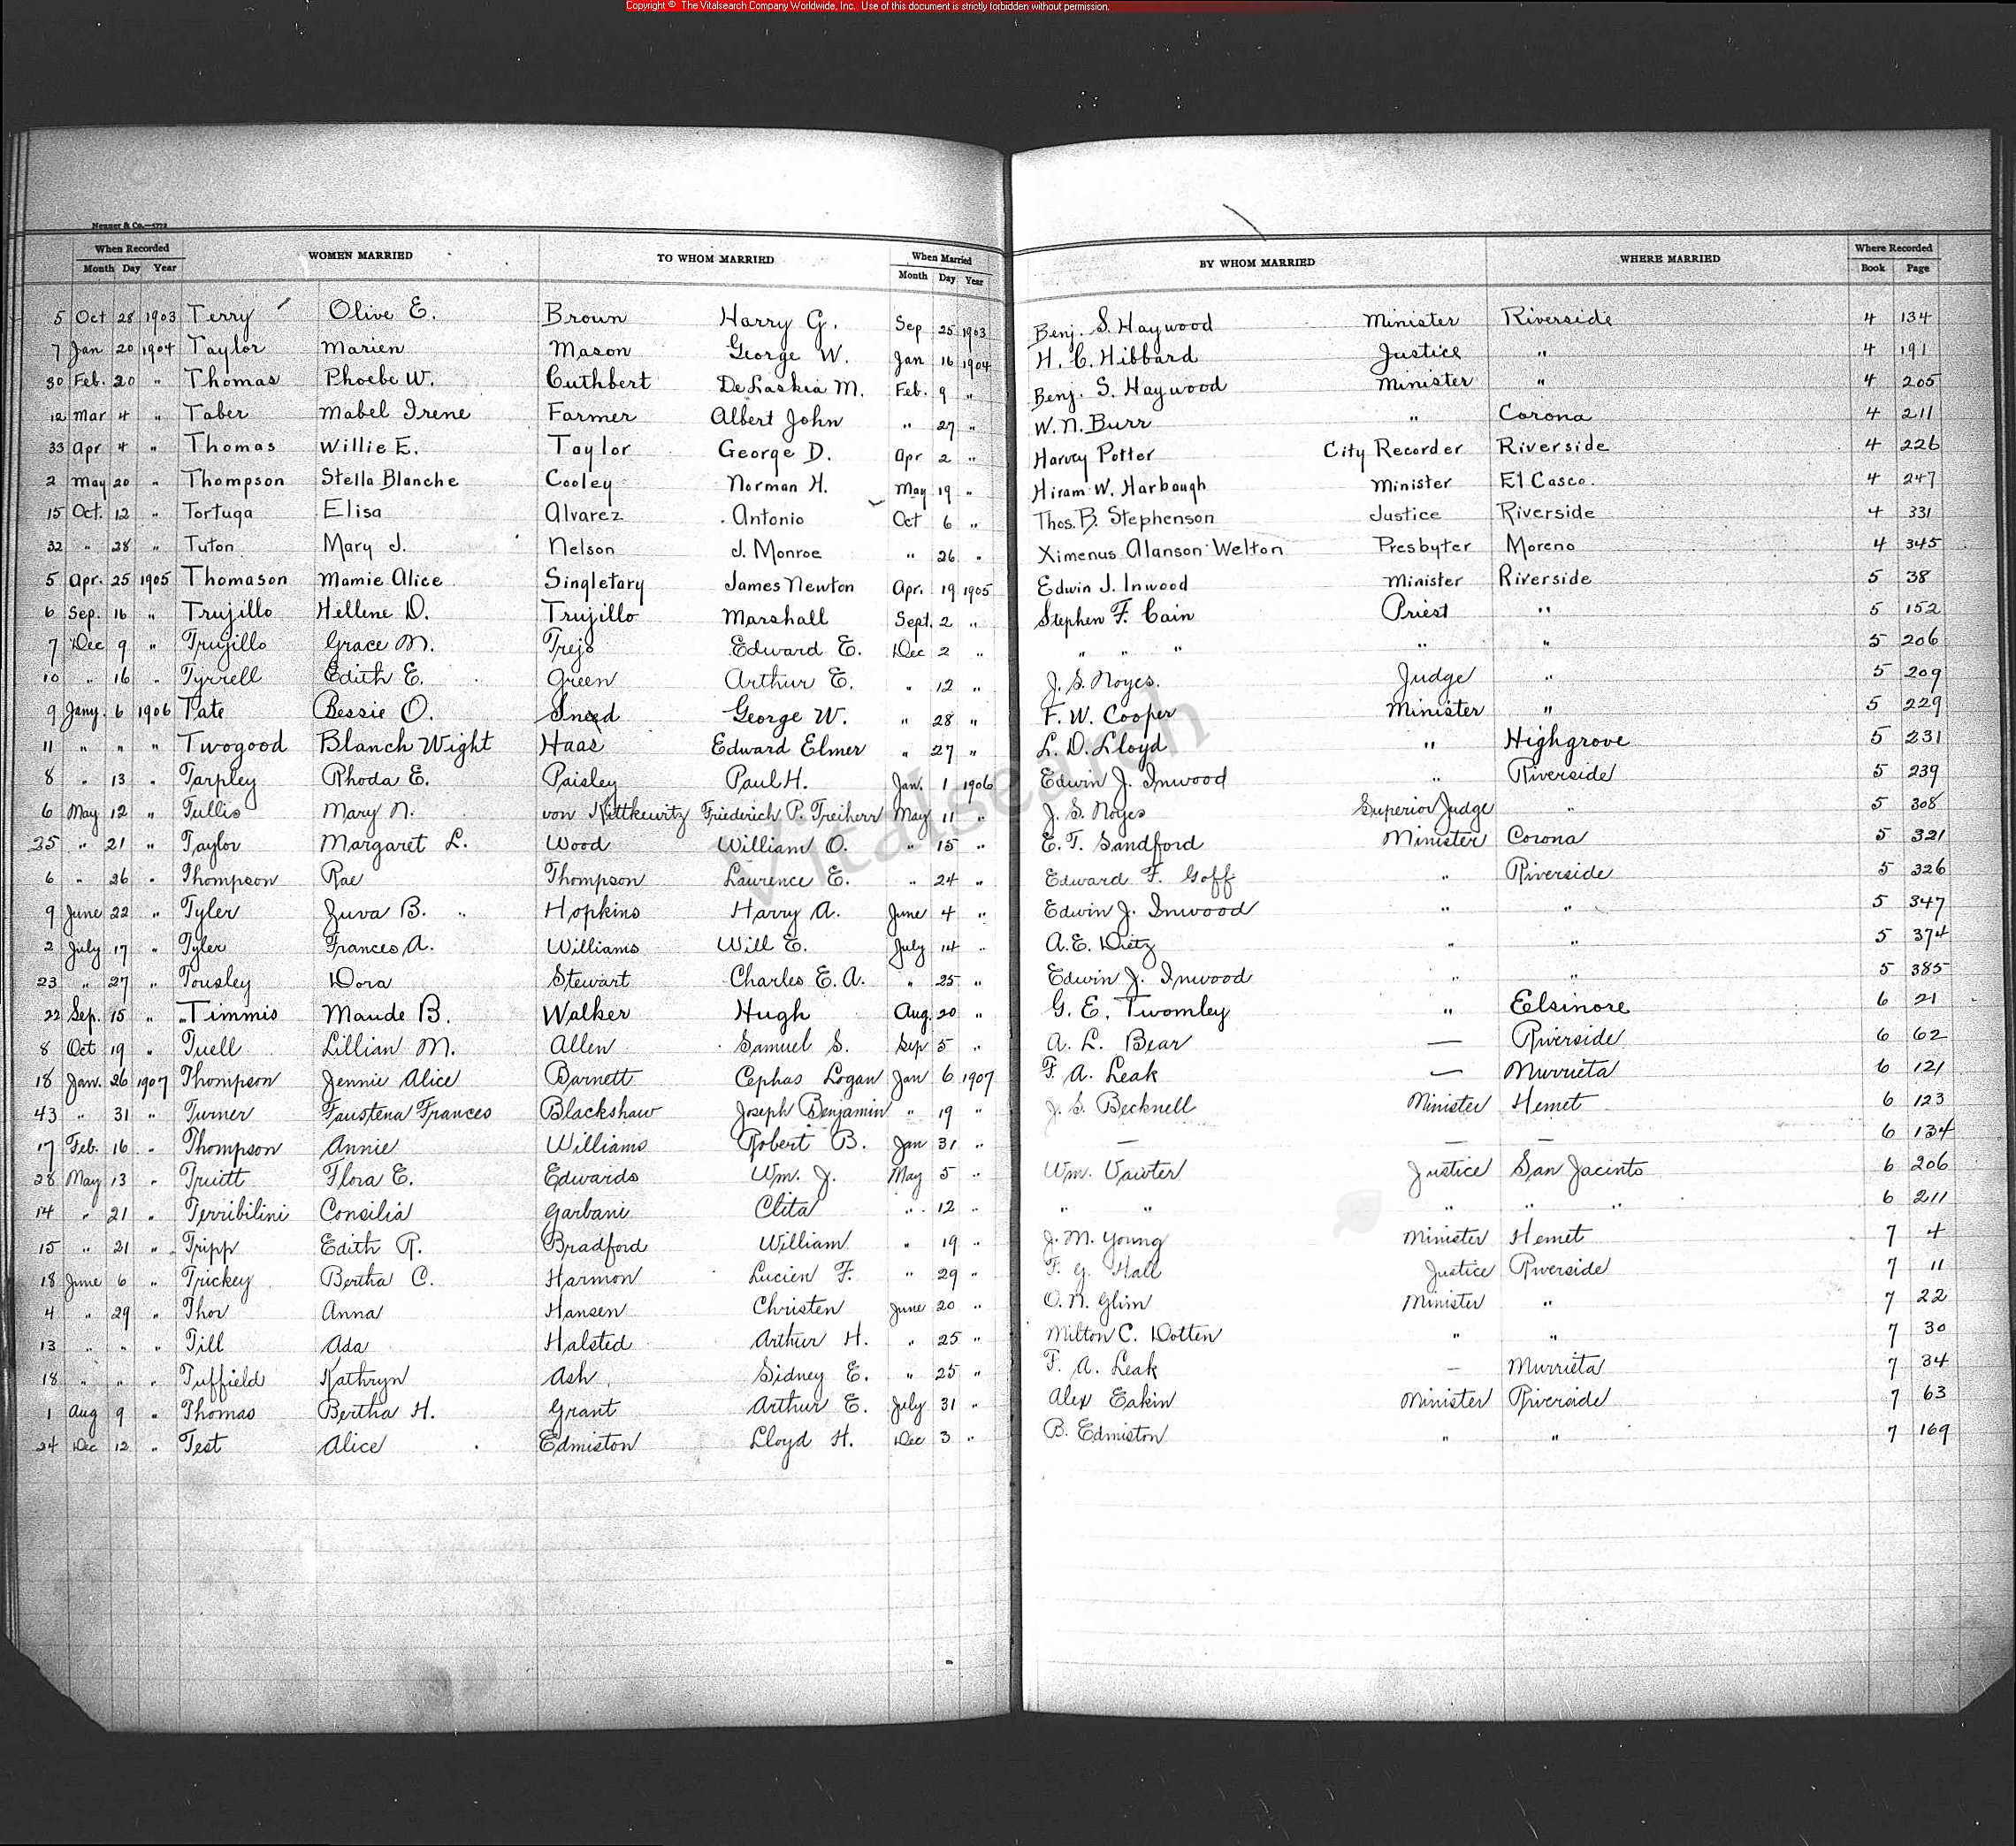 Copyright © The Vitalsearch Company Worldwide, Inc. Use of this document is strictly forbidden without permission.
Neuner & Co.—1772
When Recorded WOMEN MARRIED TO WHOM MARRIED When Married BY WHOM MARRIED WHERE MARRIED Where Recorded
Month Day Year Month Day Year Book Page
5 Oct 28 1903 Terry Olive E. Brown Harry G. Sep 25 1903 Benj. S. Haywood Minister Riverside 4 134
7 Jan 20 1904 Taylor Marien Mason George W. Jan 16 1904 H. C. Hibbard Justice " 4 191
30 Feb. 20 " Thomas Phoebe W. Cuthbert DeLaskia M. Feb. 9 " Benj. S. Haywood Minister " 4 205
12 Mar 4 " Taber Mabel Irene Farmer Albert John " 27 " W. N. Burr " Corona 4 211
33 Apr 4 " Thomas Willie E. Taylor George D. Apr 2 " Harvey Potter City Recorder Riverside 4 226
2 May 20 " Thompson Stella Blanche Cooley Norman H. May 19 " Hiram W. Harbaugh Minister El Casco. 4 247
15 Oct. 12 " Tortuga Elisa Alvarez Antonio Oct 6 " Thos. B. Stephenson Justice Riverside 4 331
32 " 28 " Tuton Mary J. Nelson J. Monroe " 26 " Ximenus Alanson Welton Presbyter Moreno 4 345
5 Apr. 25 1905 Thomason Mamie Alice Singletary James Newton Apr. 19 1905 Edwin J. Inwood Minister Riverside 5 38
6 Sep. 16 " Trujillo Hellene D. Trujillo Marshall Sept. 2 " Stephen F. Cain Priest " 5 152
7 Dec 9 " Trujillo Grace M. Trejo Edward E. Dec 2 " " " " " " 5 206
10 " 16 " Tyrrell Edith E. Green Arthur E. " 12 " J. S. Noyes. Judge " 5 209
9 Jany. 6 1906 Tate Bessie O. Sneed George W. " 28 " F. W. Cooper Minister " 5 229
11 " " " Twogood Blanch Wight Haas Edward Elmer " 27 " L. D. Lloyd " Highgrove 5 231
8 " 13 " Tarpley Rhoda E. Paisley Paul H. Jan. 1 1906 Edwin J. Inwood " Riverside 5 239
6 May 12 " Tullis Mary N. von Kittkewitz Friederich P. Freiherr May 11 " J. S. Noyes Superior Judge " 5 308
25 " 21 " Taylor Margaret L. Wood William O. " 15 " E. T. Sandford Minister Corona 5 321
6 " 26 " Thompson Rae Thompson Laurence E. " 24 " Edward F. Goff " Riverside 5 326
9 June 22 " Tyler Zuva B. " Hopkins Harry A. June 4 " Edwin J. Inwood " " 5 347
2 July 17 " Tyler Frances A. Williams Will E. July 14 " A. E. Dietz " " 5 374
23 " 27 " Tousley Dora Stewart Charles E. A. " 25 " Edwin J. Inwood " " 5 385
22 Sep. 15 " Timmis Maude B. Walker Hugh Aug. 20 " G. E. Twomley " Elsinore 6 21
8 Oct 19 " Tuell Lillian M. Allen Samuel S. Sep 5 " A. L. Bear — Riverside 6 62
18 Jan. 26 1907 Thompson Jennie Alice Barnett Cephas Logan Jan 6 1907 F. A. Leak — Murrieta 6 121
43 " 31 " Turner Faustena Frances Blackshaw Joseph Benjamin " 19 " J. S. Becknell Minister Hemet 6 123
17 Feb. 16 " Thompson Annie Williams Robert B. Jan 31 " — — — 6 134
28 May 13 " Truitt Flora E. Edwards Wm. J. May 5 " Wm. Vawter Justice San Jacinto 6 206
14 " 21 " Terribilini Consilia Garbani Clita " 12 " " " " " " 6 211
15 " 21 " Tripp Edith R. Bradford William " 19 " J. M. Young Minister Hemet 7 4
18 June 6 " Trickey Bertha C. Harmon Lucien F. " 29 " F. G. Hall Justice Riverside 7 11
4 " 29 " Thor Anna Hansen Christen June 20 " O. N. Glim Minister " 7 22
13 " " " Till Ada Halsted Arthur H. " 25 " Milton C. Dotten " " 7 30
18 " " " Tuffield Kathryn Ash Sidney E. " 25 " F. A. Leak — Murrieta 7 34
1 Aug 9 " Thomas Bertha H. Grant Arthur E. July 31 " Alex Eakin Minister Riverside 7 63
24 Dec 12 " Test Alice Edmiston Lloyd H. Dec 3 " B. Edmiston " " 7 169
Vitalsearch